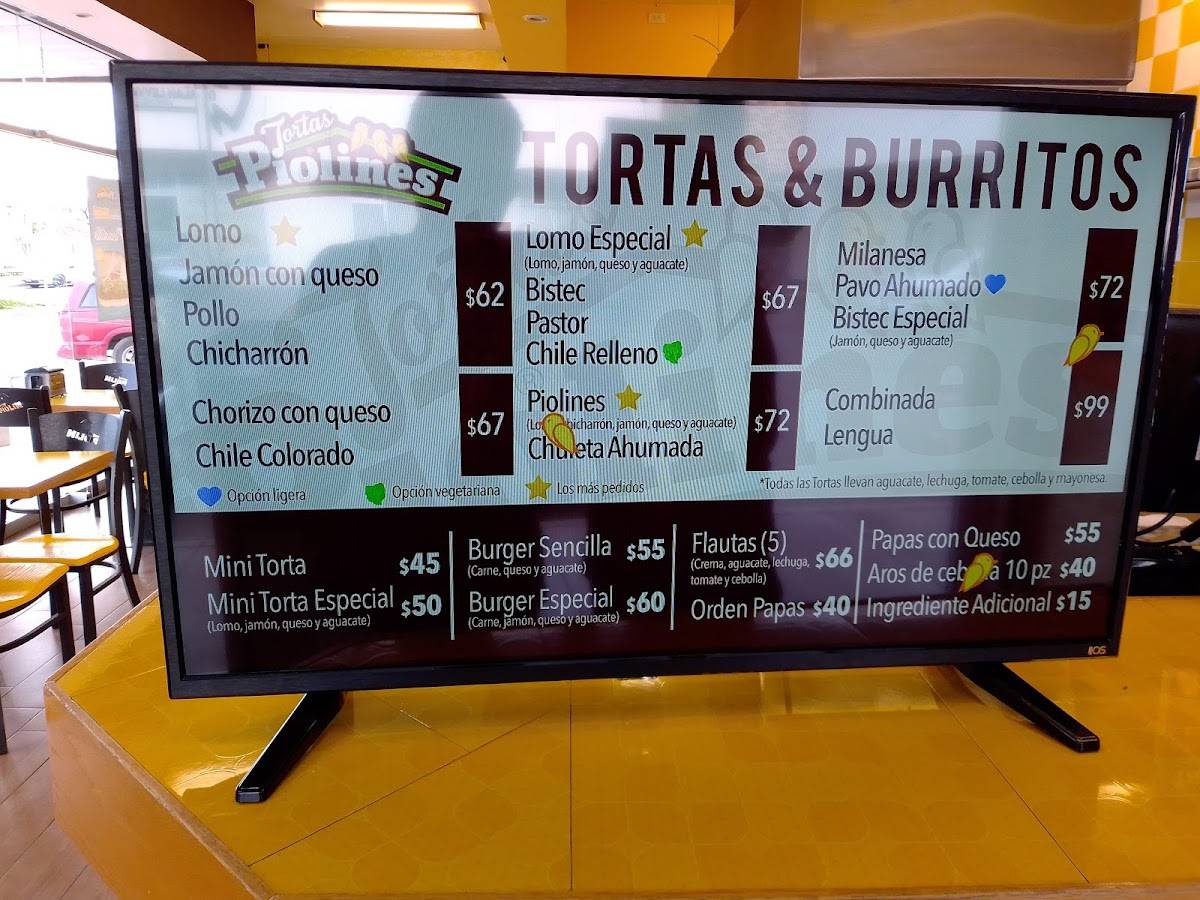 Tortas
Piolines
TORTAS & BURRITOS
Lomo
Jamón con queso
Pollo
Chicharrón
$62
Chorizo con queso
Chile Colorado
$67
Lomo Especial
(Lomo, jamón, queso y aguacate)
Bistec
Pastor
Chile Relleno
$67
Piolines
jamón, queso y aguacate)
Ahumada
$72
Milanesa
Pavo Ahumado
Bistec Especial
(Jamón, queso y aguacate)
$72
Combinada
Lengua
$99
Opción ligera
Opción vegetariana
Los más pedidos
*Todas las Tortas llevan aguacate, lechuga, tomate, cebolla y mayonesa.
Mini Torta $45
Mini Torta Especial $50
(Lomo, jamón, queso y aguacate)
Burger Sencilla $55
(Carne, queso y aguacate)
Burger Especial $60
(Carne, jamón, queso y aguacate)
Flautas (5) $66
(Crema, aguacate, lechuga,
tomate y cebolla)
Orden Papas $40
Papas con Queso $55
Aros de 10 pz $40
Ingrediente Adicional $15